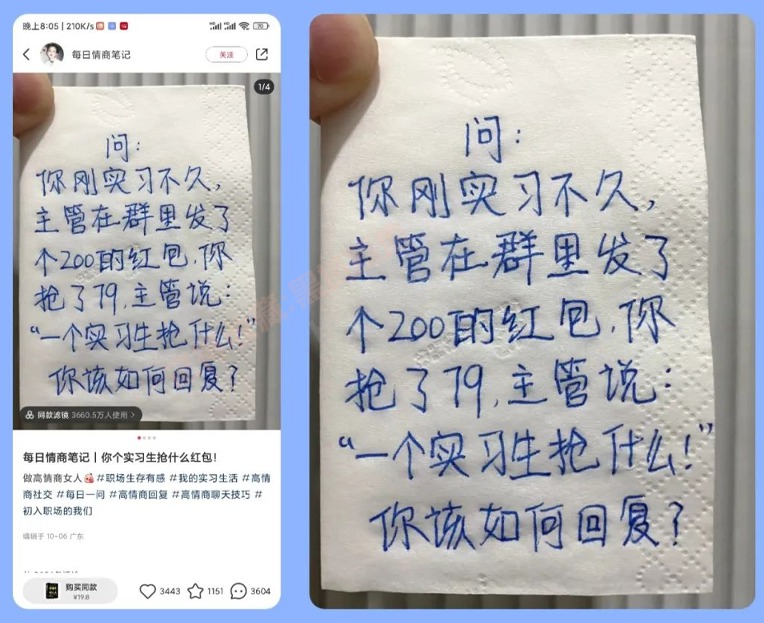 晚上8:05 | 210K/s
70
每日情商笔记
关注
1/4
问:
你刚实习不久,
主管在群里发了
个200的红包,你
抢了79,主管说:
“一个实习生抢什么!”
你该如何回复?
同款滤镜 3660.5万人使用 >
每日情商笔记 | 你个实习生抢什么红包!
做高情商女人 #职场生存有感 #我的实习生活 #高情
商社交 #每日一问 #高情商回复 #高情商聊天技巧 #
初入职场的我们
编辑于 10-06 广东
购买同款
¥19.8
3443
1151
3604
问:
你刚实习不久,
主管在群里发了
个200的红包,你
抢了79,主管说:
“一个实习生抢什么!”
你该如何回复?